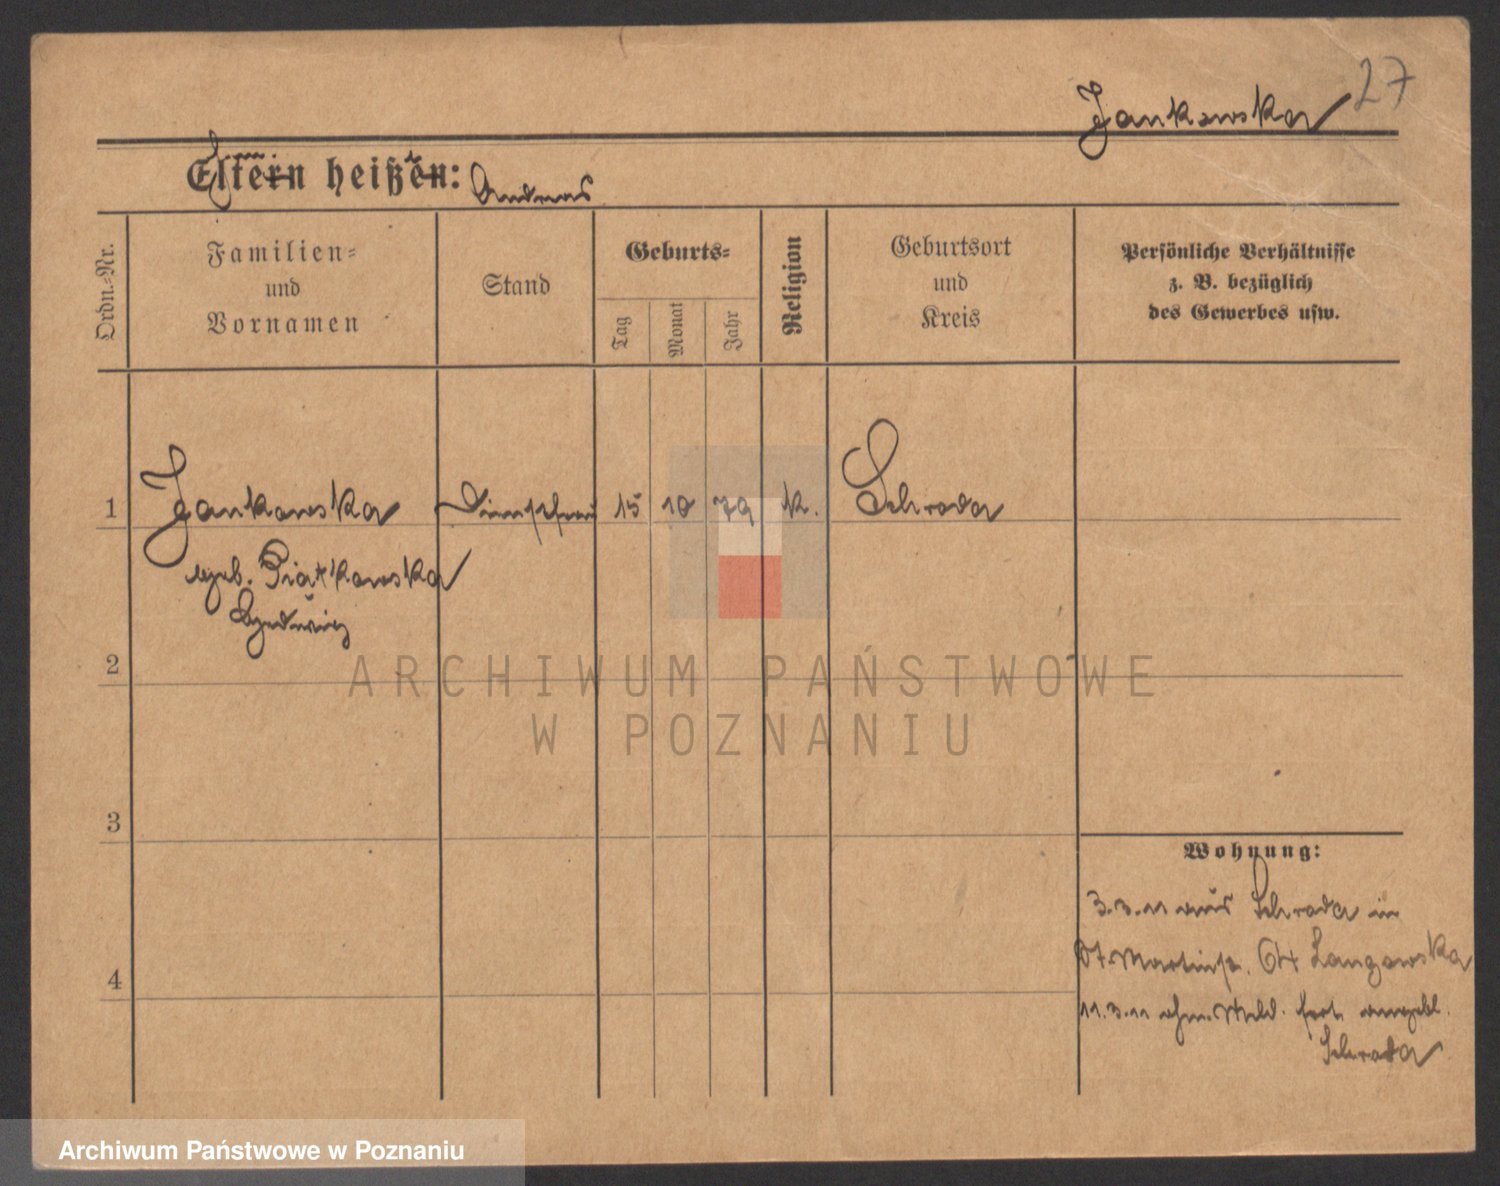 27
Jankowska
Eltern heißen: Andreas
Ordn.=Nr.
Familien=
und
Vornamen
Stand
Geburts=
Tag
Monat
Jahr
Religion
Geburtsort
und
Kreis
Persönliche Verhältnisse
z. B. bezüglich
des Gewerbes usw.
1
Jankowska
15
10
79
k.
Schroda
geb. Piatkowska
Hedwig
2
ARCHIWUM PAŃSTWOWE
W POZNANIU
3
Wohnung:
3.3.11 aus Schroda in
St. Martinstr. 64
4
11.3.11 ohn. Meld. fort angebl.
Schroda
Archiwum Państwowe w Poznaniu